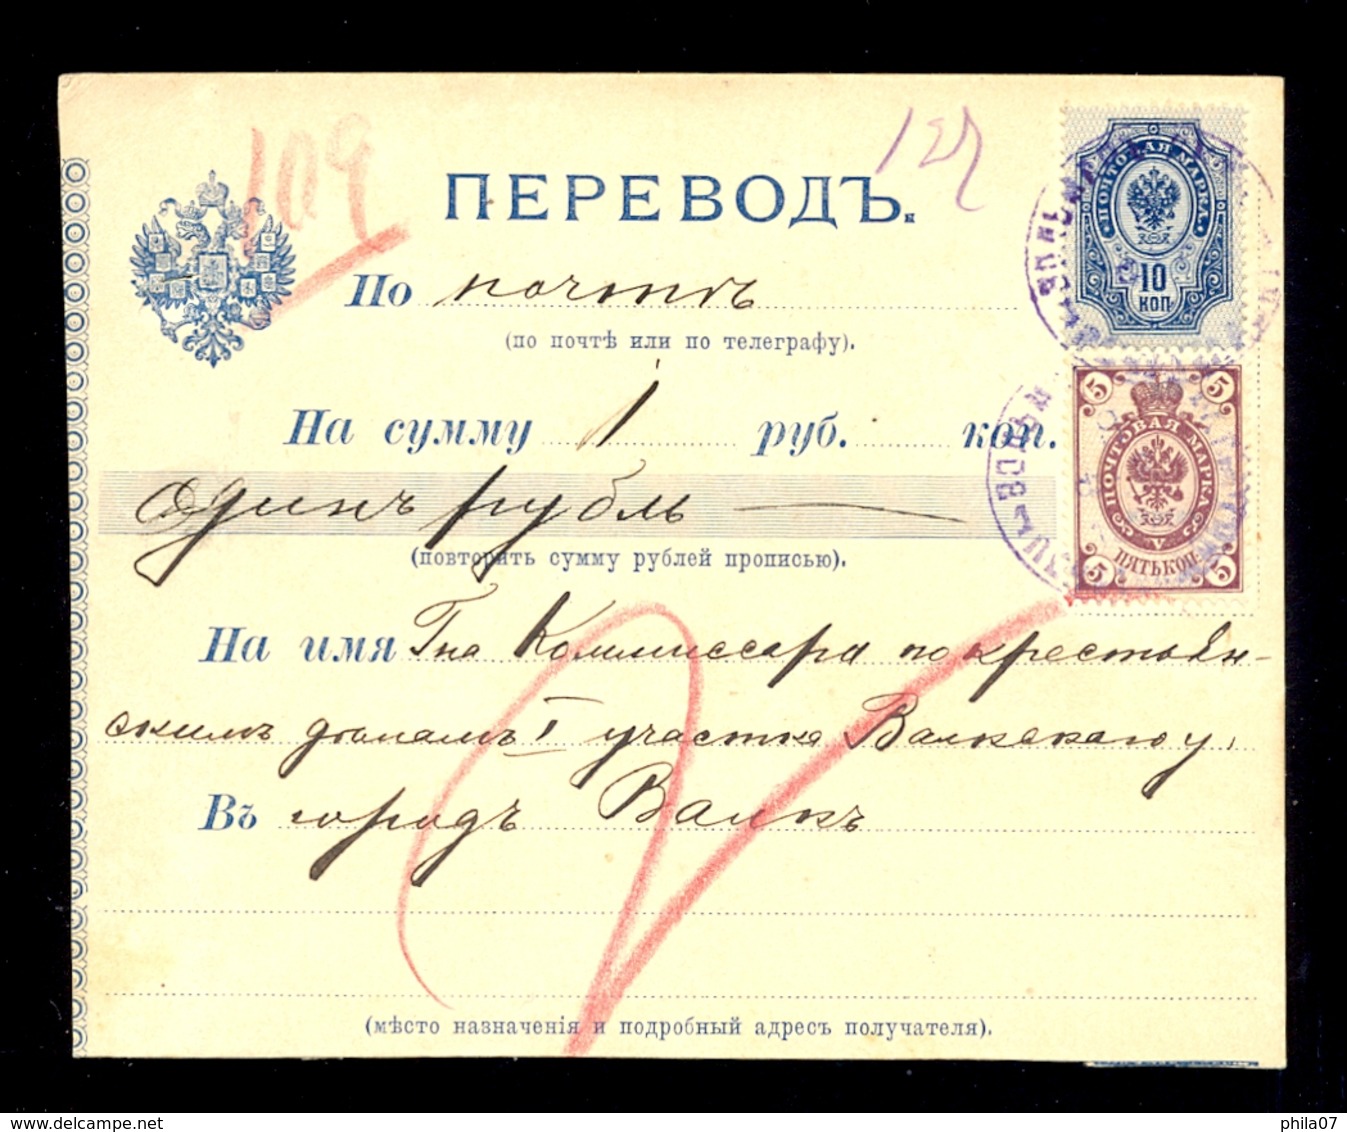 109
122
ПЕРЕВОДЪ.
По почтѣ
(по почтѣ или по телеграфу).
На сумму 1 руб. коп.
Одинъ рубль
(повторить сумму рублей прописью).
На имя Гна Комиссара по крестьян-
скимъ дѣламъ I участка Валкскаго у.
Въ городъ Валкъ
(мѣсто назначенія и подробный адресъ получателя).
ПОЧТОВАЯ МАРКА.
10
КОП
5 5
ПОЧТОВАЯ МАРКА
V
ПЯТЬ КОП.
5 5
phila07